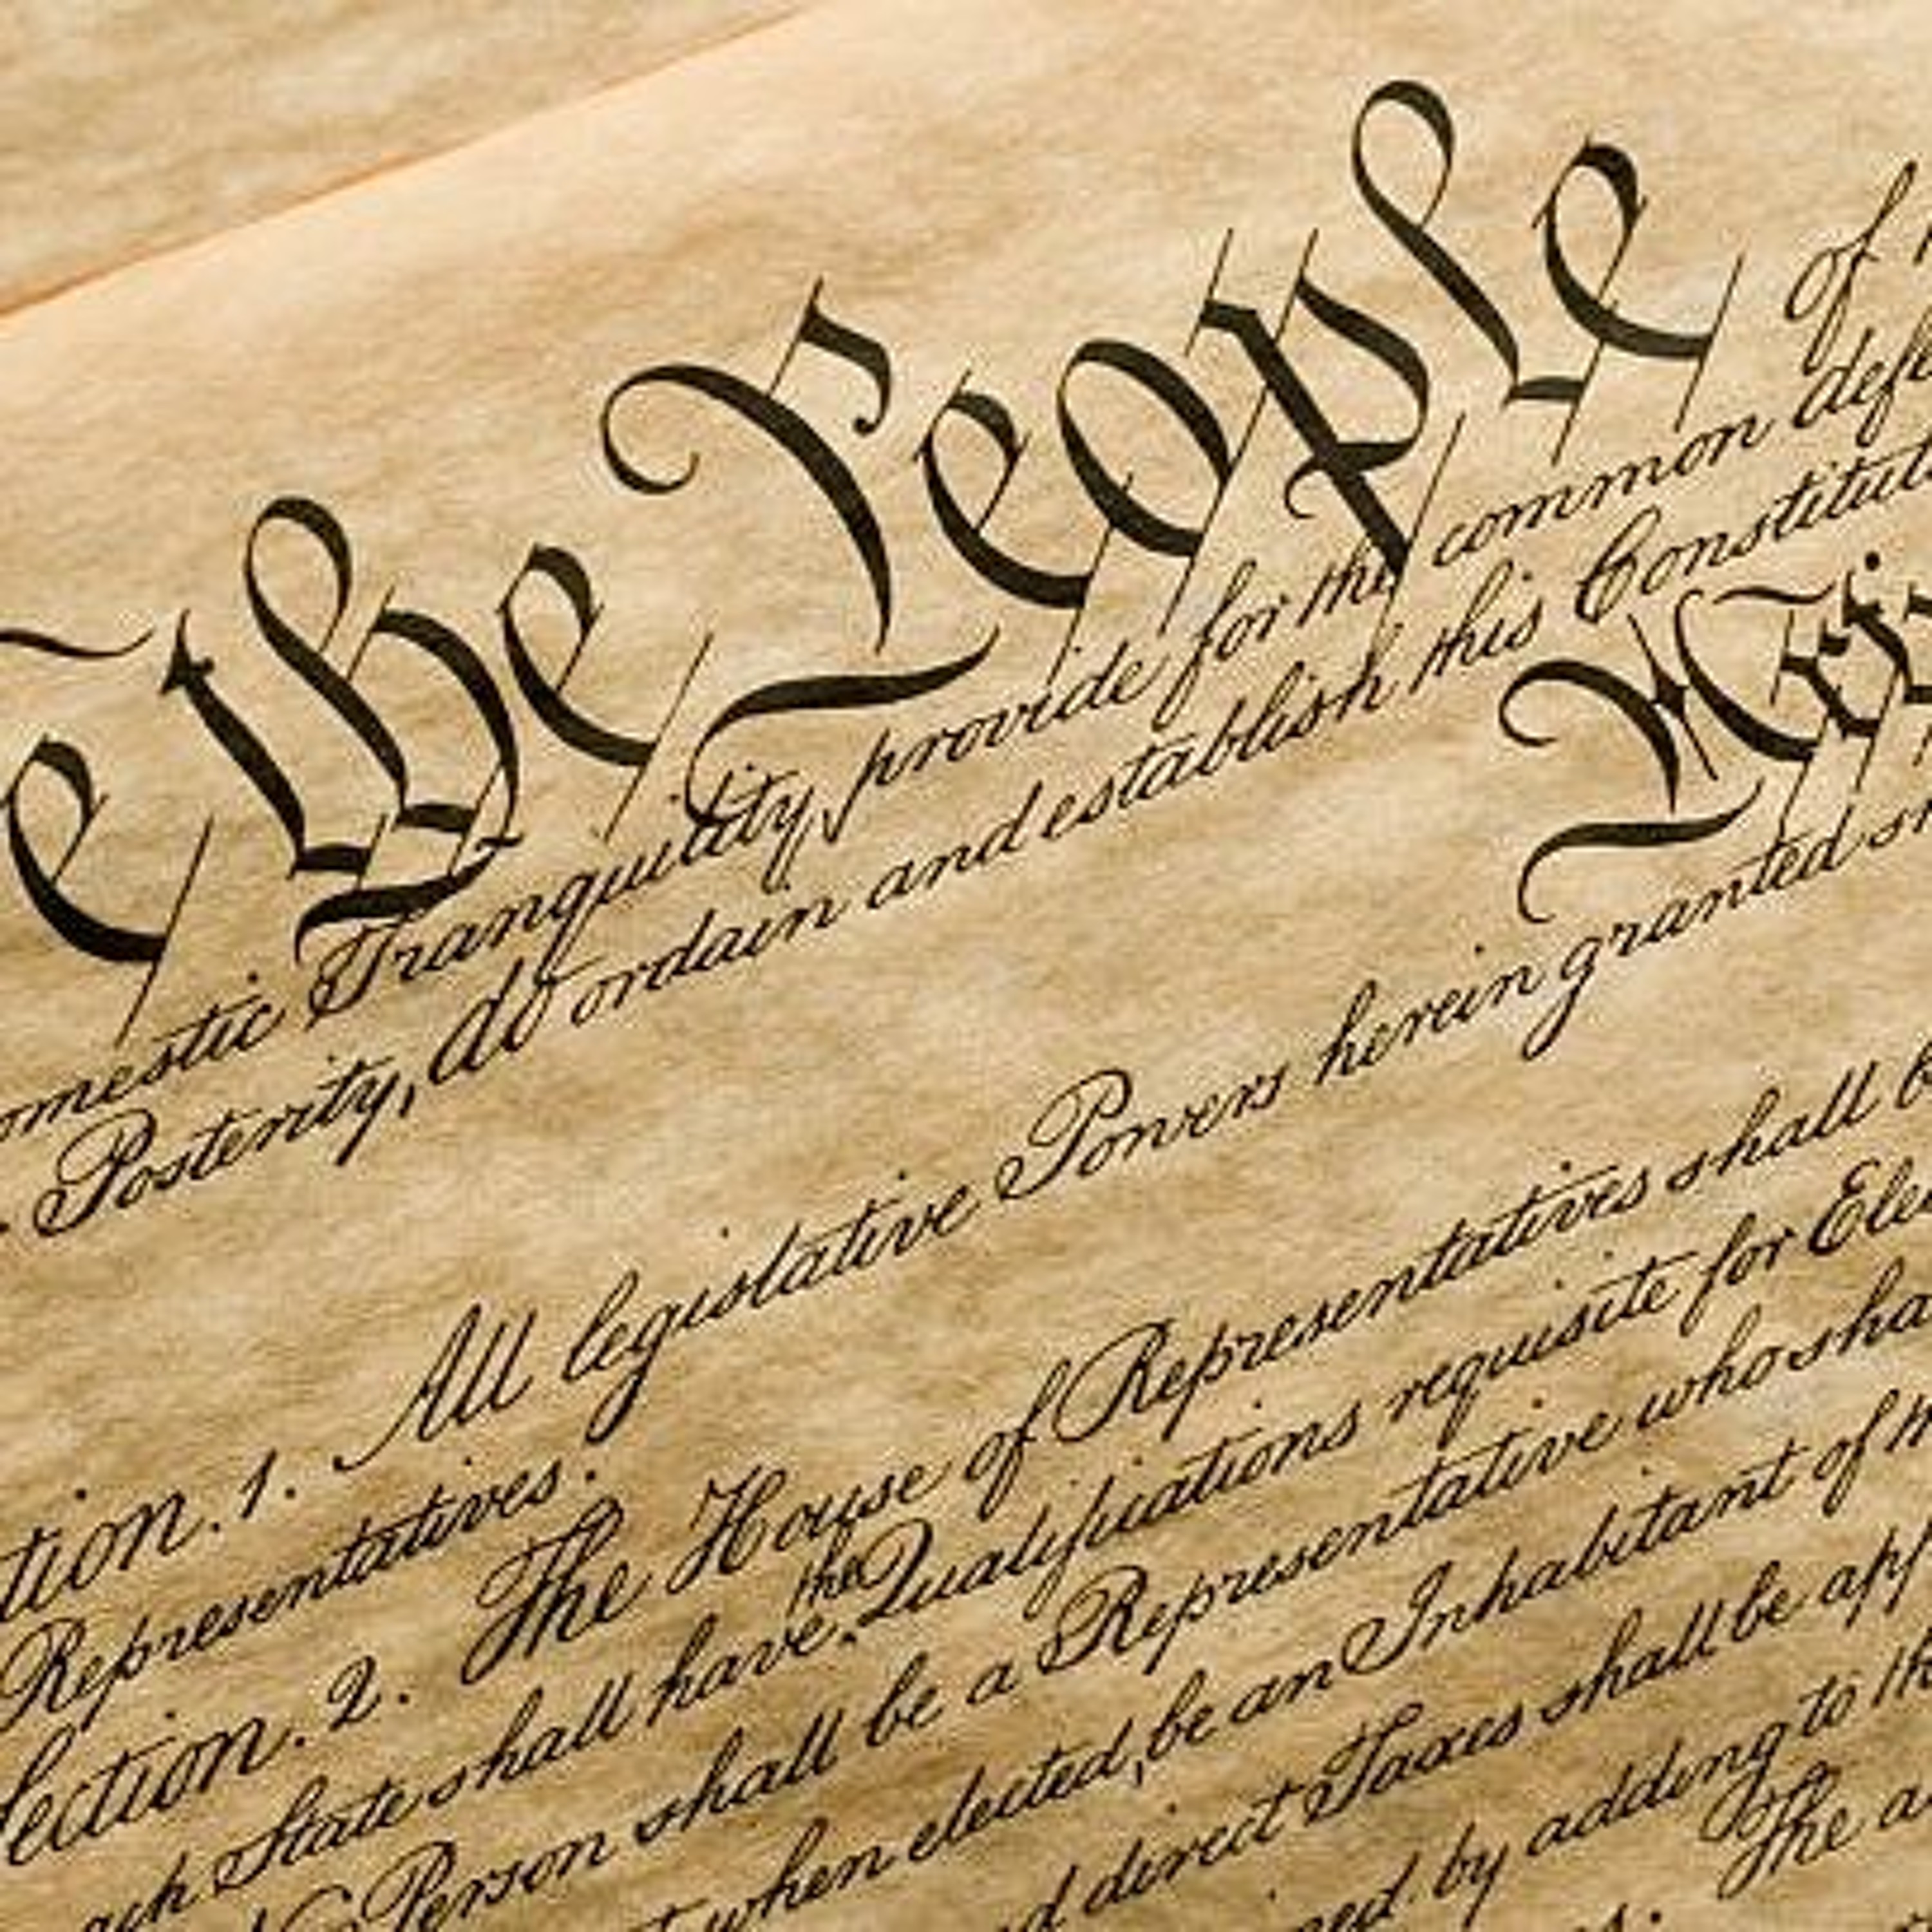 e the People of
omestic Tranquility, provide for the common defe
Posterity, do ordain and establish this Constitut
All legislative Powers herein granted s
tion. 1.
Representatives.
ection. 2. The House of Representatives shall b
ach State shall have the Qualifications requisite for Ele
No Person shall be a Representative who sha
when elected, be an Inhabitant of
d direct Taxes shall be app
ned by adding to
The